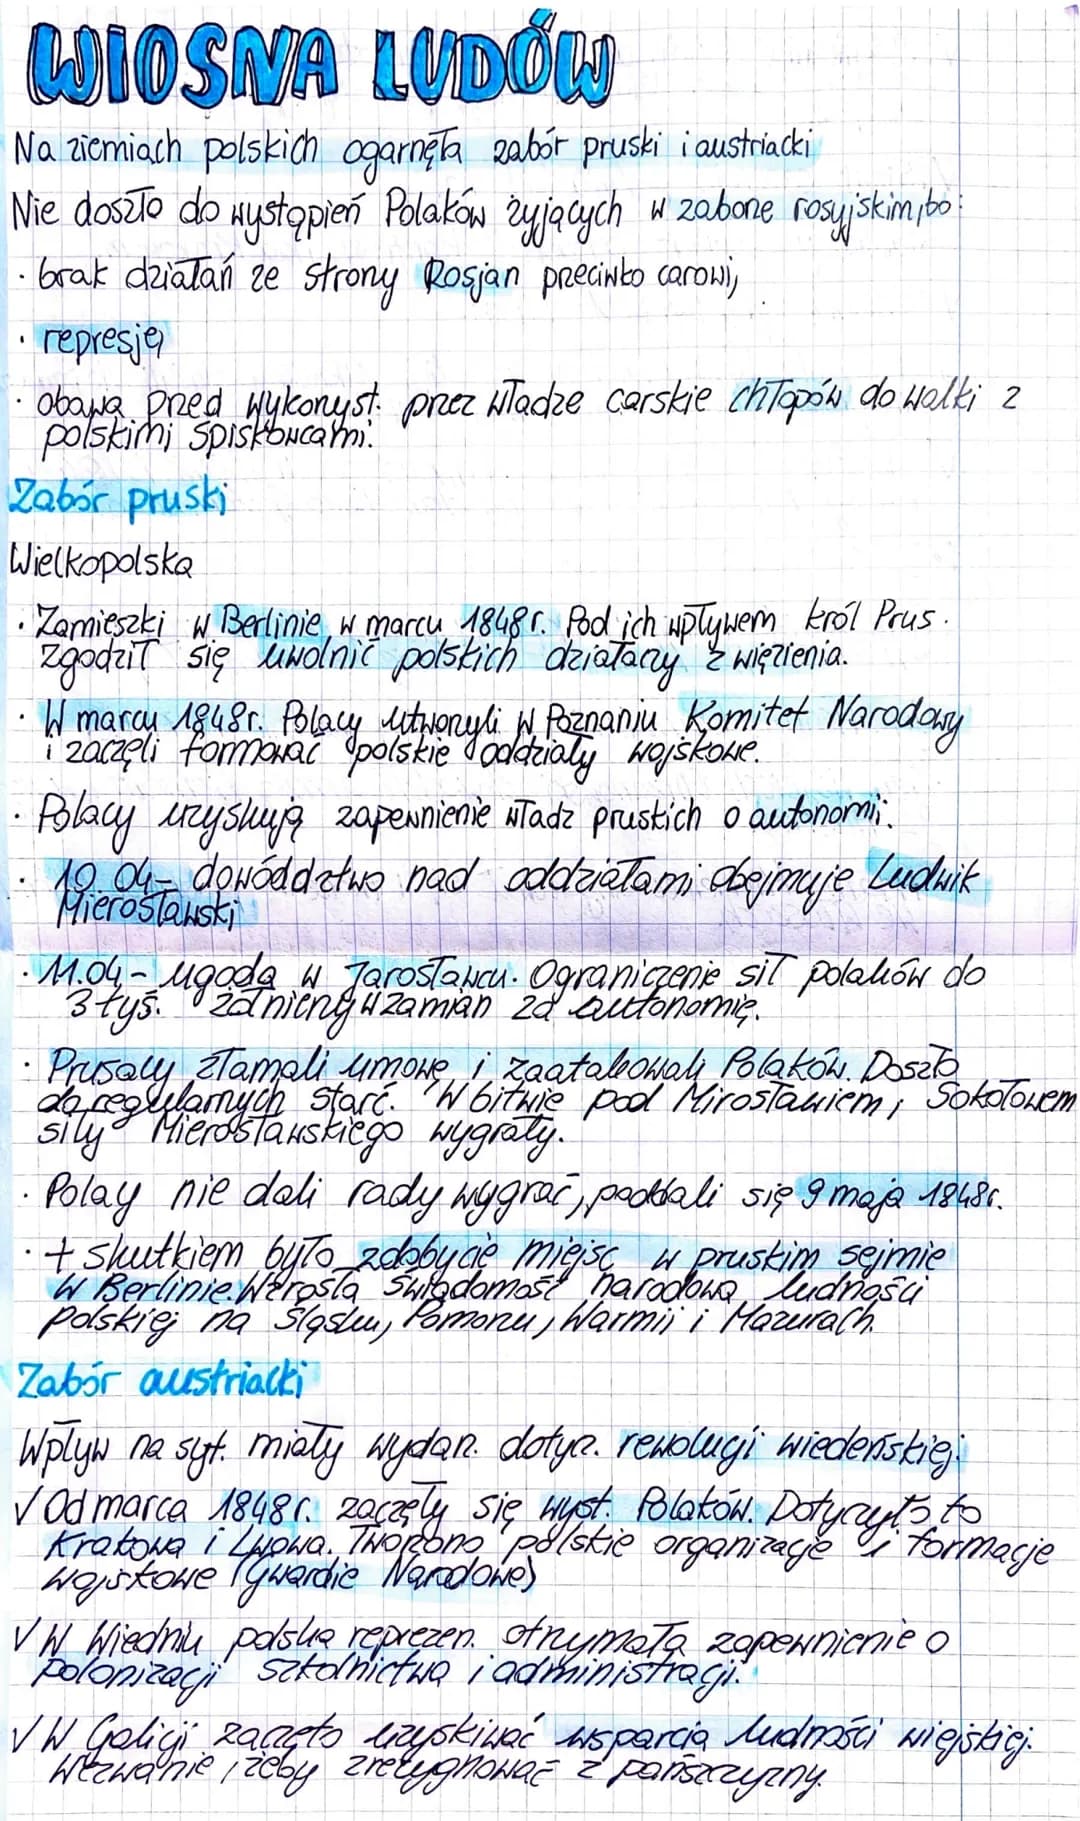 WIOSNA LUDÓW
Na ziemiach polskich ogarnęła zabór pruski i austriacki
Nie doszło do wystąpień Polaków żyjących w zaborze rosyjskim, bo:
· brak działań ze strony Rosjan przeciwko carowi,
· represje,
· obawa przed wykorzyst. przez władze carskie chłopów do walki z
polskimi spiskowcami.
Zabór pruski
Wielkopolska
· Zamieszki w Berlinie w marcu 1848r. Pod ich wpływem król Prus
zgodził się uwolnić polskich działaczy z więzienia.
· W marcu 1848r. Polacy utworzyli w Poznaniu Komitet Narodowy
i zaczęli formować polskie oddziały wojskowe.
· Polacy uzyskują zapewnienie władz pruskich o autonomi.
· 10.04- dowództwo nad oddziałami obejmuje Ludwik
Mierosławski
· 11.04- ugoda w Jarosławcu. Ograniczenie sił polaków do
3 tyś. żołnierzy w zamian za autonomię.
· Prusacy złamali umowę i zaatakowali Polaków. Doszło
do regularnych starć. W bitwie pod Mirosławiem, Sokołowem
siły Mierosławskiego wygrały.
· Polacy nie dali rady wygrać, poddali się 9 maja 1848r.
· + skutkiem było zdobycie miejsc w pruskim sejmie
w Berlinie. Wzrosła świadomość narodowa ludności
polskiej na Śląsku, Pomorzu, Warmii i Mazurach.
Zabór austriacki
Wpływ na syt. miały wydarz. dotycz. rewolucji wiedeńskiej:
√ Od marca 1848r. zaczęły się wyst. Polaków. Dotyczyło to
Krakowa i Lwowa. Tworzono polskie organizacje i formacje
wojskowe (gwardie Narodowe)
√ W Wiedniu polska reprezen. otrzymała zapewnienie o
polonizacji szkolnictwa i administracji.
√ W Galicji zaczęto uzyskiwać wsparcia ludności wiejskiej.
Wezwanie, żeby zrezygnować z pańszczyzny.